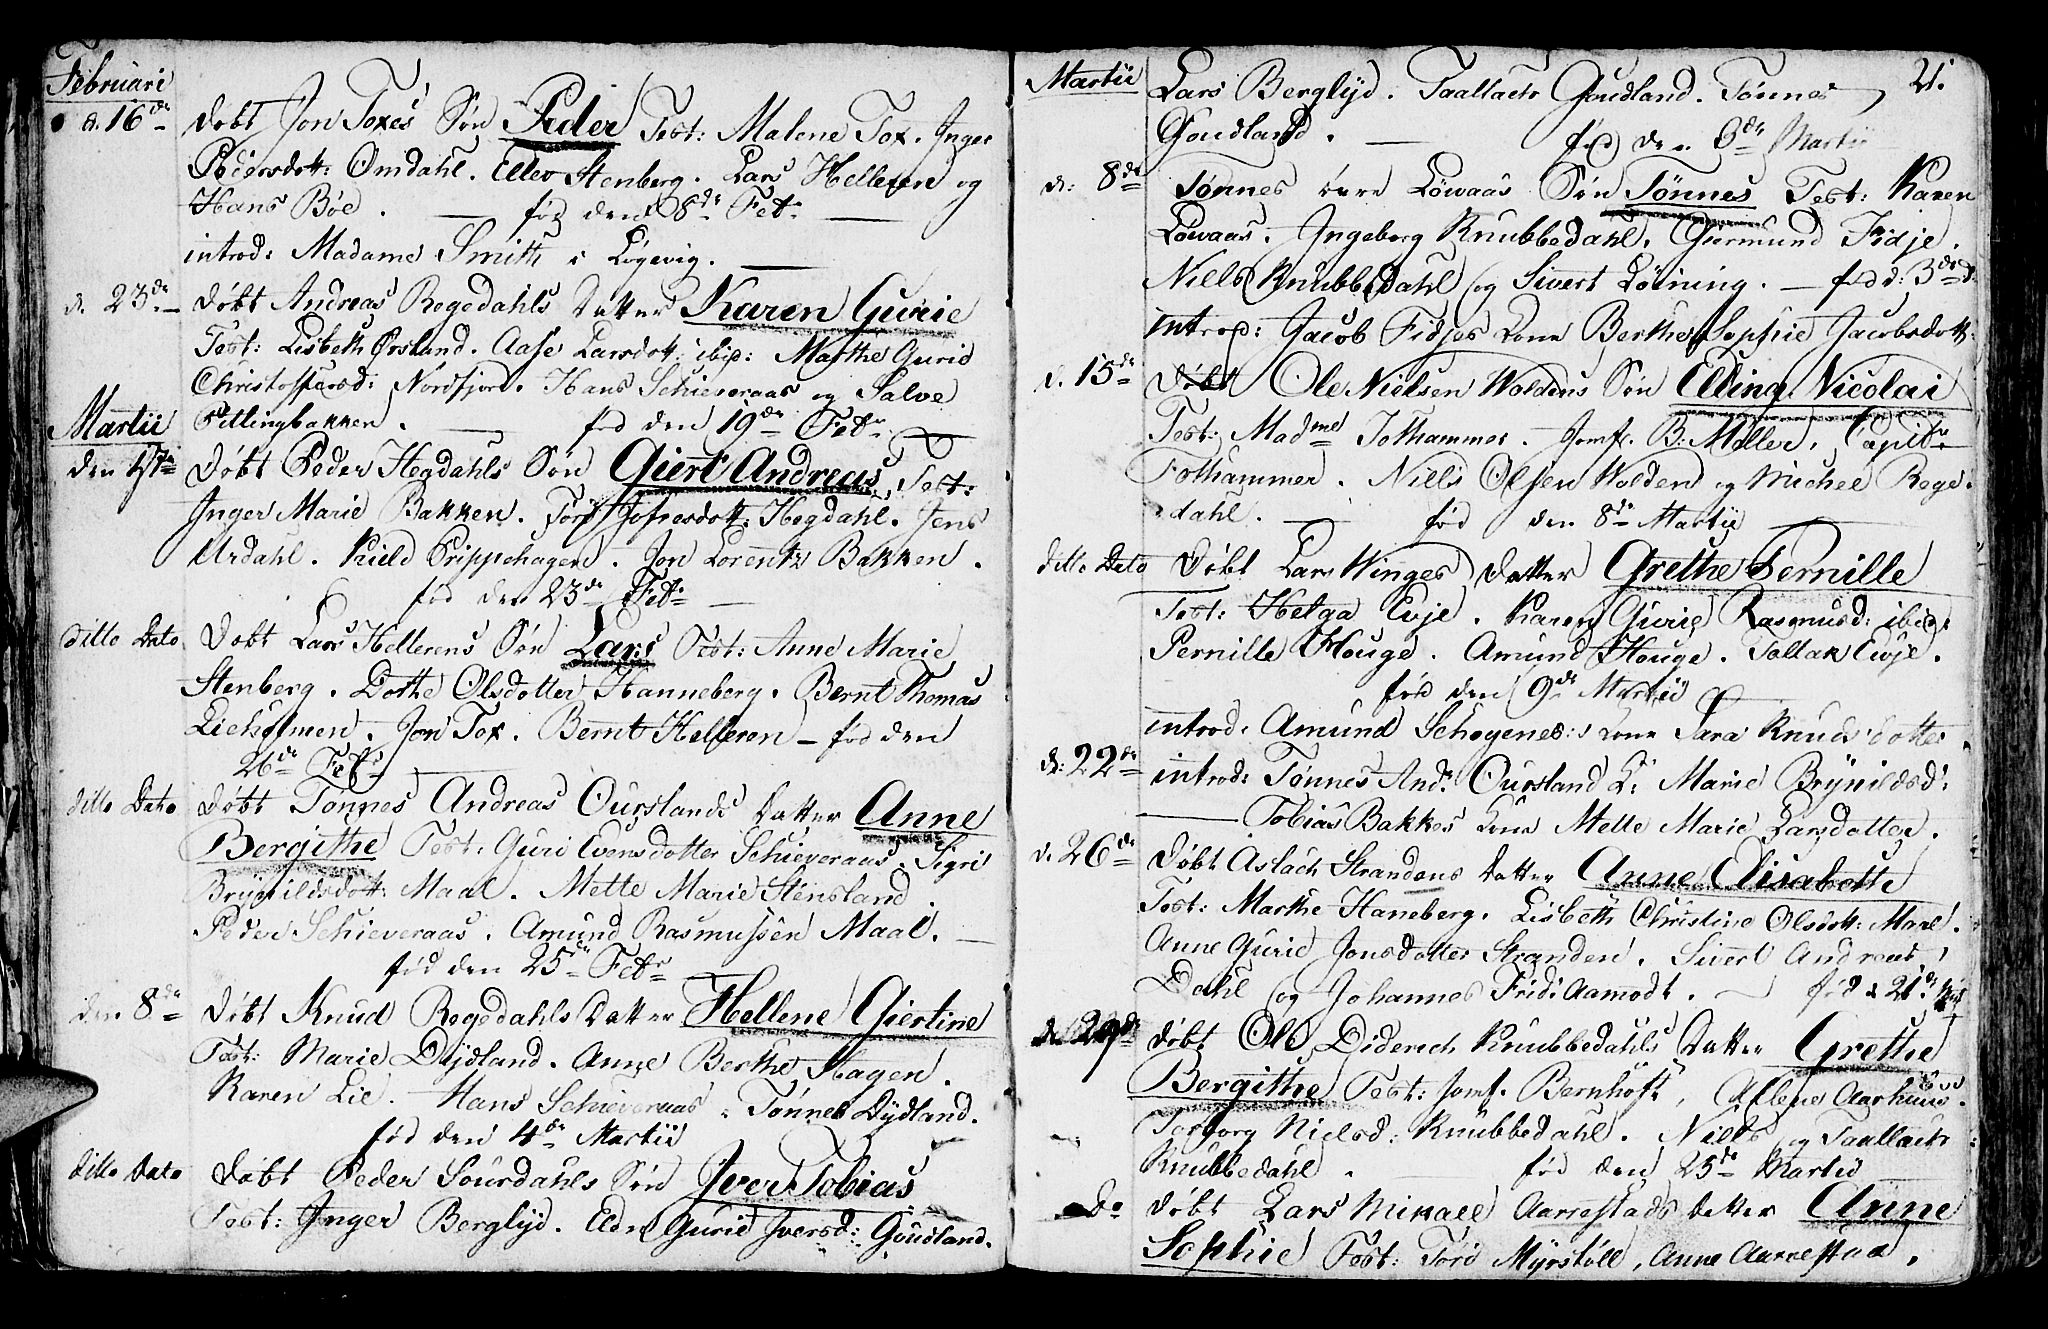 Februari
d. 16de døbt Jon Toxes Søn Peder Test: Malene Tox. Inger
Pedersdott: Omdahl. Ellev Stenberg. Lars Helleren og
Hans Böe. — fød den 8de Febr. —
introd: Madame Smith i Løgevig. —
d. 23de — døbt Andreas Regedahls Datter Karen Gurie
Test: Lisbeth Ørsland. Aase Larsdott: ibid: Marthe Gurid
Christoffersd: Nordfjord. Hans Schieveraas og Salve
Martii Pillingbakken. — fød den 19de Febr. —
den 1ste døbt Peder Hegdahls Søn Giert Andreas, Test:
Inger Marie Bakken. Jofresdott: Hegdahl. Jens
Urdahl. Kield Prippehagen. Jon Lorentz Bakken.
fød den 23de Febr. —
ditto Dato Døbt Lars Hellerens Søn Lars Test: Anne Marie
Stenberg. Dorthe Olsdotter Hanneberg. Bernt Thomas
Lieholmen. Jon Tox. Bernt Helleren — fød den
26de Febr.
ditto Dato døbt Tønnes Andreas Ourslands Datter Anne
Bergithe Test: Guri Evensdotter Schieveraas. Sigri
Brynildsdott: Maal. Mette Marie Stensland.
Peder Schieveraas. Amund Rasmussen Maal. —
fød den 25de Febr
den 8de døbt Knud Regedahls Datter Hellene Giertine
Test: Marie Dydland. Anne Berthe Hagen.
Karen Lie. Hans Schieveraas. Tønnes Dydland.
fød den 4de Martii
ditto Dato døbt Peder Sourdahls Søn Iver Tobias
Test: Inger Berglyd. Elen Gurie Iversd: Goudland.
Martii Lars Berglyd. Taallachr Goudland. Tønnes 21.
Goudland. — fød den 6de Martii
d: 8de Tønnes Løwaas Søn Tønnes Test: Karen
Løwaas. Ingeborg Knubbedahl. Giermund Fidje.
Niels Knubbedahl og Sivert Løining. — fød d: 3de d.
introd: Jacob Fidjes Kone Berthe Sophie Jacobsdott:
d. 15de døbt Ole Nielsen Woldens Søn Elling Nicolai
Test: Madme Folhammer. Jomf. B: Møller. Capit.
Folhammer. Niels Olsen Wolden og Michel Rege-
dahl. — fød den 8de Martii —
ditto Dato døbt Lars Winges Datter Grethe Pernille
Test: Helga Evje. Karen Gurie Rasmusd: ibid:
Pernille Houge. Amund Houge. Tallak Evje.
fød den 9de Martii
introd: Amund Schogenes: Kone Sara Knudsdotter.
d: 22de introd: Tønnes And: Oursland K: Marie Brynildsd:
— Tobias Bakkes Kone Mette Marie Larsdotter.
d. 26de døbt Aslach Strandens Datter Anne Elisabethe
Test: Marthe Haneberg. Lisbeth Christine Olsdott: Maal.
Anne Gurie Jonsdotter Stranden. Sivert Andreas
Dahl og Johannes Frid: Aamodt. — fød d 21de
d. 29de døbt Ole Diderich Knubbedahls Datter Grethe
Bergithe Test: Jomf. Bernhoft, Aarhuus.
Torborg Nielsd: Knubbedahl. Niels og Taallachr
Knubbedahl. — fød den 25de Martii
Do døbt Lars Mikael Aarrestads Datter Anne
Sophie Test: Tord Myrstøll, Anne Aarrestad.